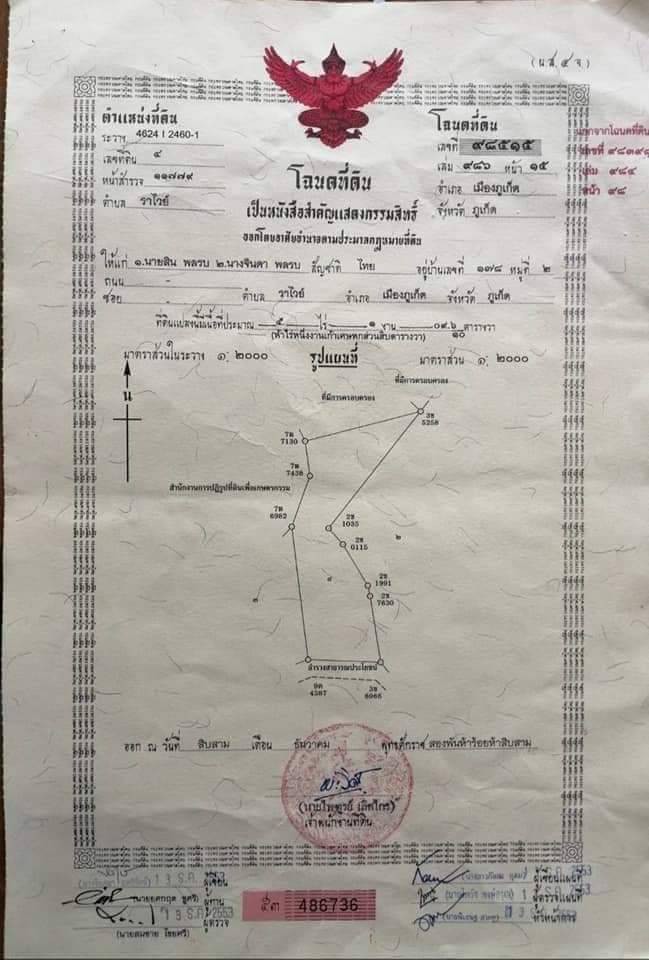 (น.ส. ๔ จ.)
ตำแหน่งที่ดิน
ระวาง 4624 I 2460-1
เลขที่ดิน ๔
หน้าสำรวจ ๑๑๗๗๙
ตำบล ราไวย์
โฉนดที่ดิน
เลขที่ ๙๘๕๑๕
เล่ม ๙๘๖ หน้า ๑๕
อำเภอ เมืองภูเก็ต
จังหวัด ภูเก็ต
แยกจากโฉนดที่ดิน
เล่ม ๙๘๔
หน้า ๙๘
โฉนดที่ดิน
เป็นหนังสือสำคัญแสดงกรรมสิทธิ์
ออกโดยอาศัยอำนาจตามประมวลกฎหมายที่ดิน
ให้แก่ ๑.นายสิน พลรบ ๒.นางจินดา พลรบ สัญชาติ ไทย อยู่บ้านเลขที่ ๑๗๘ หมู่ที่ ๒
ถนน -
ซอย - ตำบล ราไวย์ อำเภอ เมืองภูเก็ต จังหวัด ภูเก็ต
ที่ดินแปลงนี้มีเนื้อที่ประมาณ ๕ ไร่ ๑ งาน ๐๙.๖/๑๐ ตารางวา
(ห้าไร่หนึ่งงานเก้าเศษหกส่วนสิบตารางวา)
มาตราส่วนในระวาง ๑: ๒๐๐๐ รูปแผนที่ มาตราส่วน ๑: ๒๐๐๐
ที่มีการครอบครอง
ที่มีการครอบครอง
น
3ษ
5258
7ต
7130
7ต
7438
สำนักงานการปฏิรูปที่ดินเพื่อเกษตรกรรม
7ต
6982
2ษ
1035
2ษ
0115
๒
๔
2ษ
1991
2ษ
7630
๓
ลำรางสาธารณประโยชน์
9ต
4387
3ษ
6966
ออก ณ วันที่ สิบสาม เดือน ธันวาคม พุทธศักราช สองพันห้าร้อยห้าสิบสาม
(นายไพฑูรย์ เลิศไกร)
เจ้าพนักงานที่ดิน
ผู้เขียน
ผู้ทาน
ผู้ตรวจ
(นายสมชาย ไชยศรี)
๕๓ 486736
ผู้เขียนแผนที่
ผู้ตรวจแผนที่
หัวหน้าฝ่าย